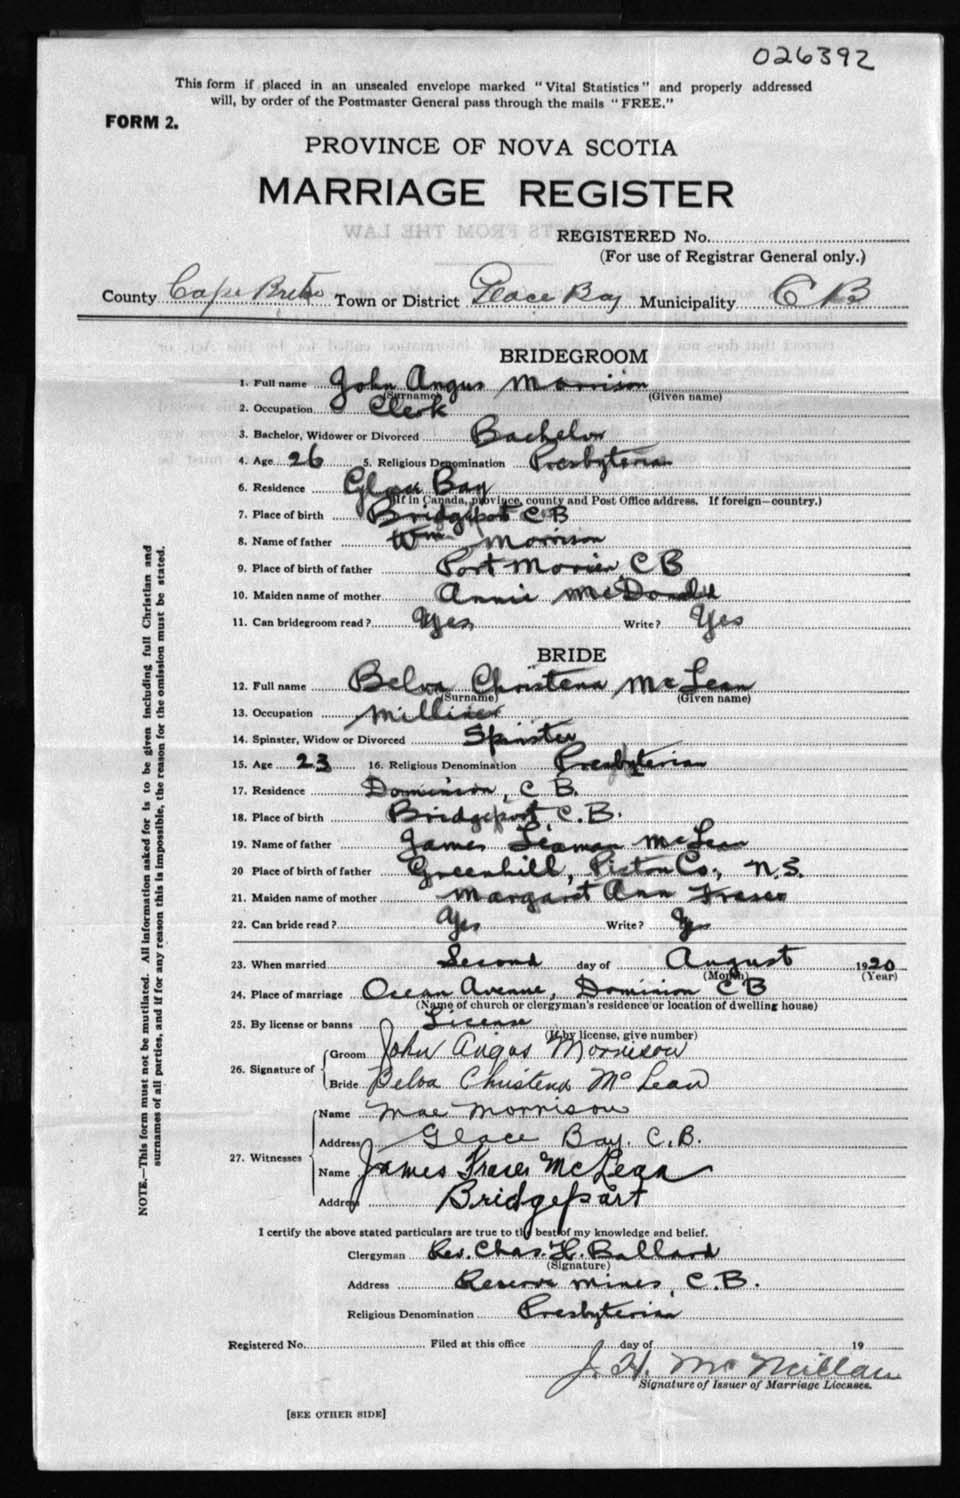 026392
This form if placed in an unsealed envelope marked "Vital Statistics" and properly addressed
will, by order of the Postmaster General pass through the mails "FREE."
FORM 2.
PROVINCE OF NOVA SCOTIA
MARRIAGE REGISTER
REGISTERED No.
(For use of Registrar General only.)
County Cape Breton Town or District Glace Bay Municipality C B
BRIDEGROOM
1. Full name John Angus Morrison
(Surname) (Given name)
2. Occupation Clerk
3. Bachelor, Widower or Divorced Bachelor
4. Age 26 5. Religious Denomination Presbyterian
6. Residence Glace Bay
(If in Canada, province, county and Post Office address. If foreign—country.)
7. Place of birth Bridgeport C B
8. Name of father Wm Morrison
9. Place of birth of father Port Morien C B
10. Maiden name of mother Annie
11. Can bridegroom read? Yes Write? Yes
BRIDE
12. Full name Belva Christena McLean
(Surname) (Given name)
13. Occupation Milliner
14. Spinster, Widow or Divorced Spinster
15. Age 23 16. Religious Denomination Presbyterian
17. Residence Dominion, C B.
18. Place of birth Bridgeport C.B.
19. Name of father James Leaman McLean
20 Place of birth of father Greenhill, Pictou Co., N.S.
21. Maiden name of mother Margaret Ann Fraser
22. Can bride read? Yes Write? Yes
23. When married Second day of August 1920
(Month) (Year)
24. Place of marriage Ocean Avenue, Dominion C B
(Name of church or clergyman's residence or location of dwelling house)
25. By license or banns License
(If by license, give number)
26. Signature of Groom John Angus Morrison
Bride Belva Christena McLean
27. Witnesses Name Mae Morrison
Address Glace Bay. C.B.
Name James Fraser McLean
Address Bridgeport
I certify the above stated particulars are true to the best of my knowledge and belief.
Clergyman Rev. Chas. H. Ballard
(Signature)
Address Reserve Mines, C.B.
Religious Denomination Presbyterian
Registered No. Filed at this office day of 19
J. H. McMillan
Signature of Issuer of Marriage Licenses.
[SEE OTHER SIDE]
NOTE.—This form must not be mutilated. All information asked for is to be given including full Christian and
surnames of all parties, and if for any reason this is impossible, the reason for the omission must be stated.